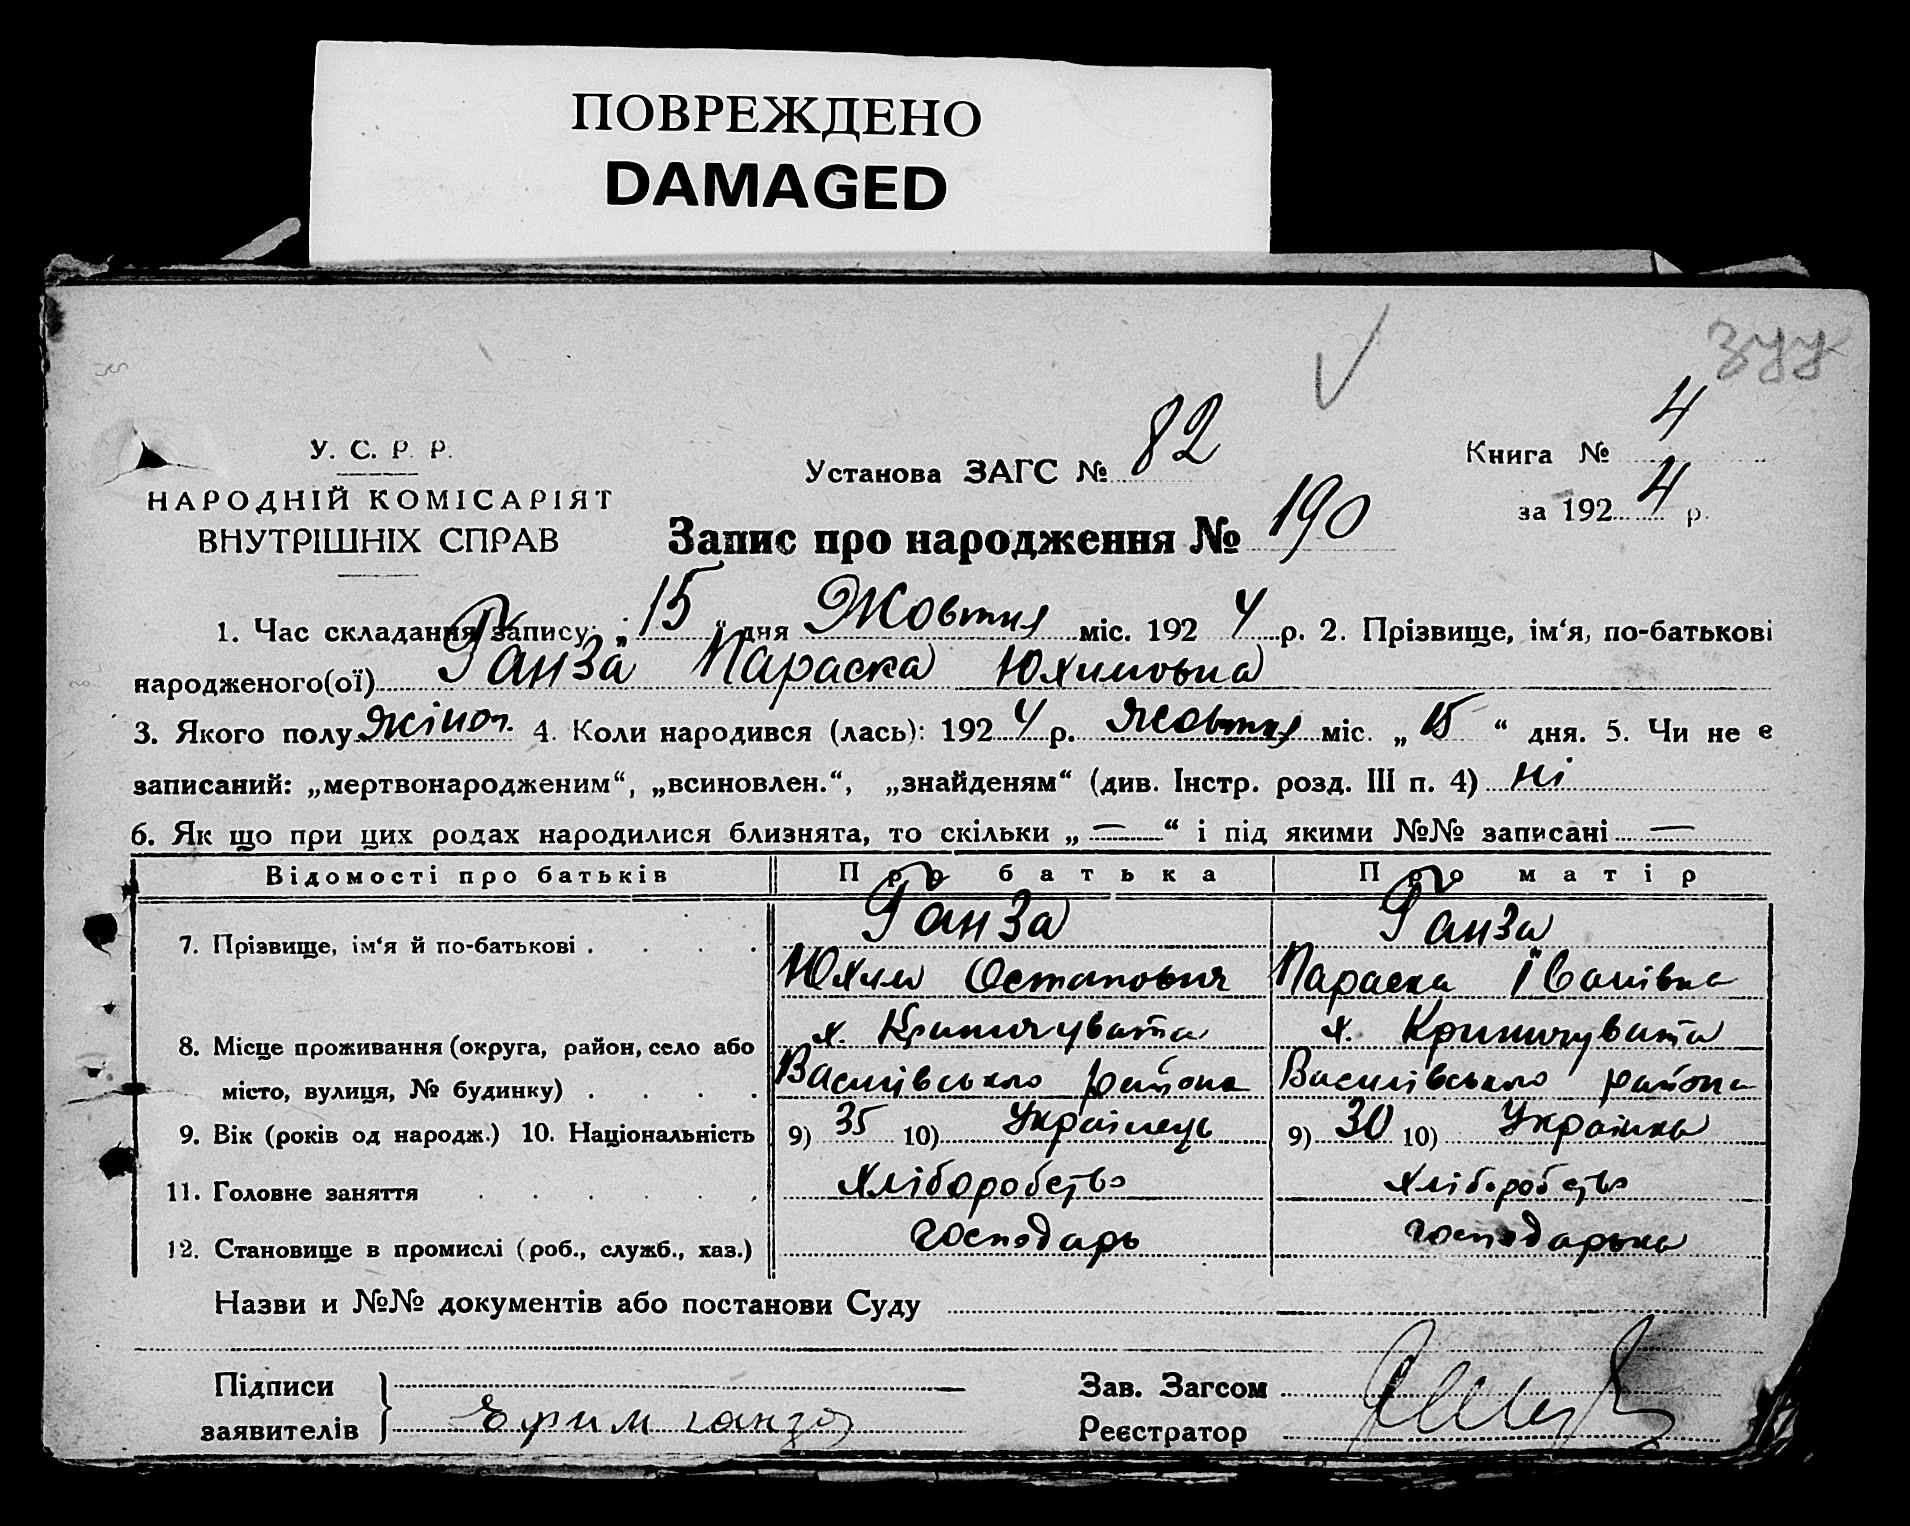 ПОВРЕЖДЕНО
DAMAGED
У. С. Р. Р.
НАРОДНІЙ КОМІСАРІЯТ
ВНУТРІШНІХ СПРАВ
Установа ЗАГС № 82
Книга № 4
за 1924 р.
Запис про народження № 190
1. Час складання запису: „15“ дня Жовтня міс. 1924 р. 2. Прізвище, ім‘я, по-батькові
народженого(ої) Ганза Параска Юхимовна
3. Якого полу жіноч. 4. Коли народився (лась): 1924 р. Жовтня міс. „15“ дня. 5. Чи не є
записаний: „мертвонародженим“, „всиновлен.“, „знайденям“ (див. Інстр. розд. III п. 4) ні
6. Як що при цих родах народилися близнята, то скільки „—“ і під якими №№ записані —
Відомості про батьків Про батька Про матір
7. Прізвище, ім‘я й по-батькові . . . . Ганза Ганза
Юхим Остапович Параска Іванівна
8. Місце проживання (округа, район, село або х. Криничувата х. Криничувата
місто, вулиця, № будинку) . . . . Василівського района Василівського района
9. Вік (років од народж.) 10. Національність 9) 35 10) Українець 9) 30 10) Українка
11. Головне заняття . . . . . . хліборобство хліборобство
12. Становище в промислі (роб., служб., хаз.) господарь господарька
Назви и №№ документів або постанови Суду
Підписи
заявителів } Ефим ганза
Зав. Загсом
Реєстратор